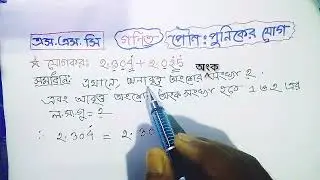 এস.এস.সি গণিত পৌনঃপুনিকের যোগ
★ যোগকর: ২.৩০৪̇ + ২.০২̇৫̇
অংক
সমাধান: এখানে, অনাবৃত্ত অংশের সংখ্যা ২.
এবং আবৃত্ত অংশের অংক সংখ্যা হবে ১ ও ২ এর
ল.সা.গু = ২
∴ ২.৩০৪̇ = ২.৩০